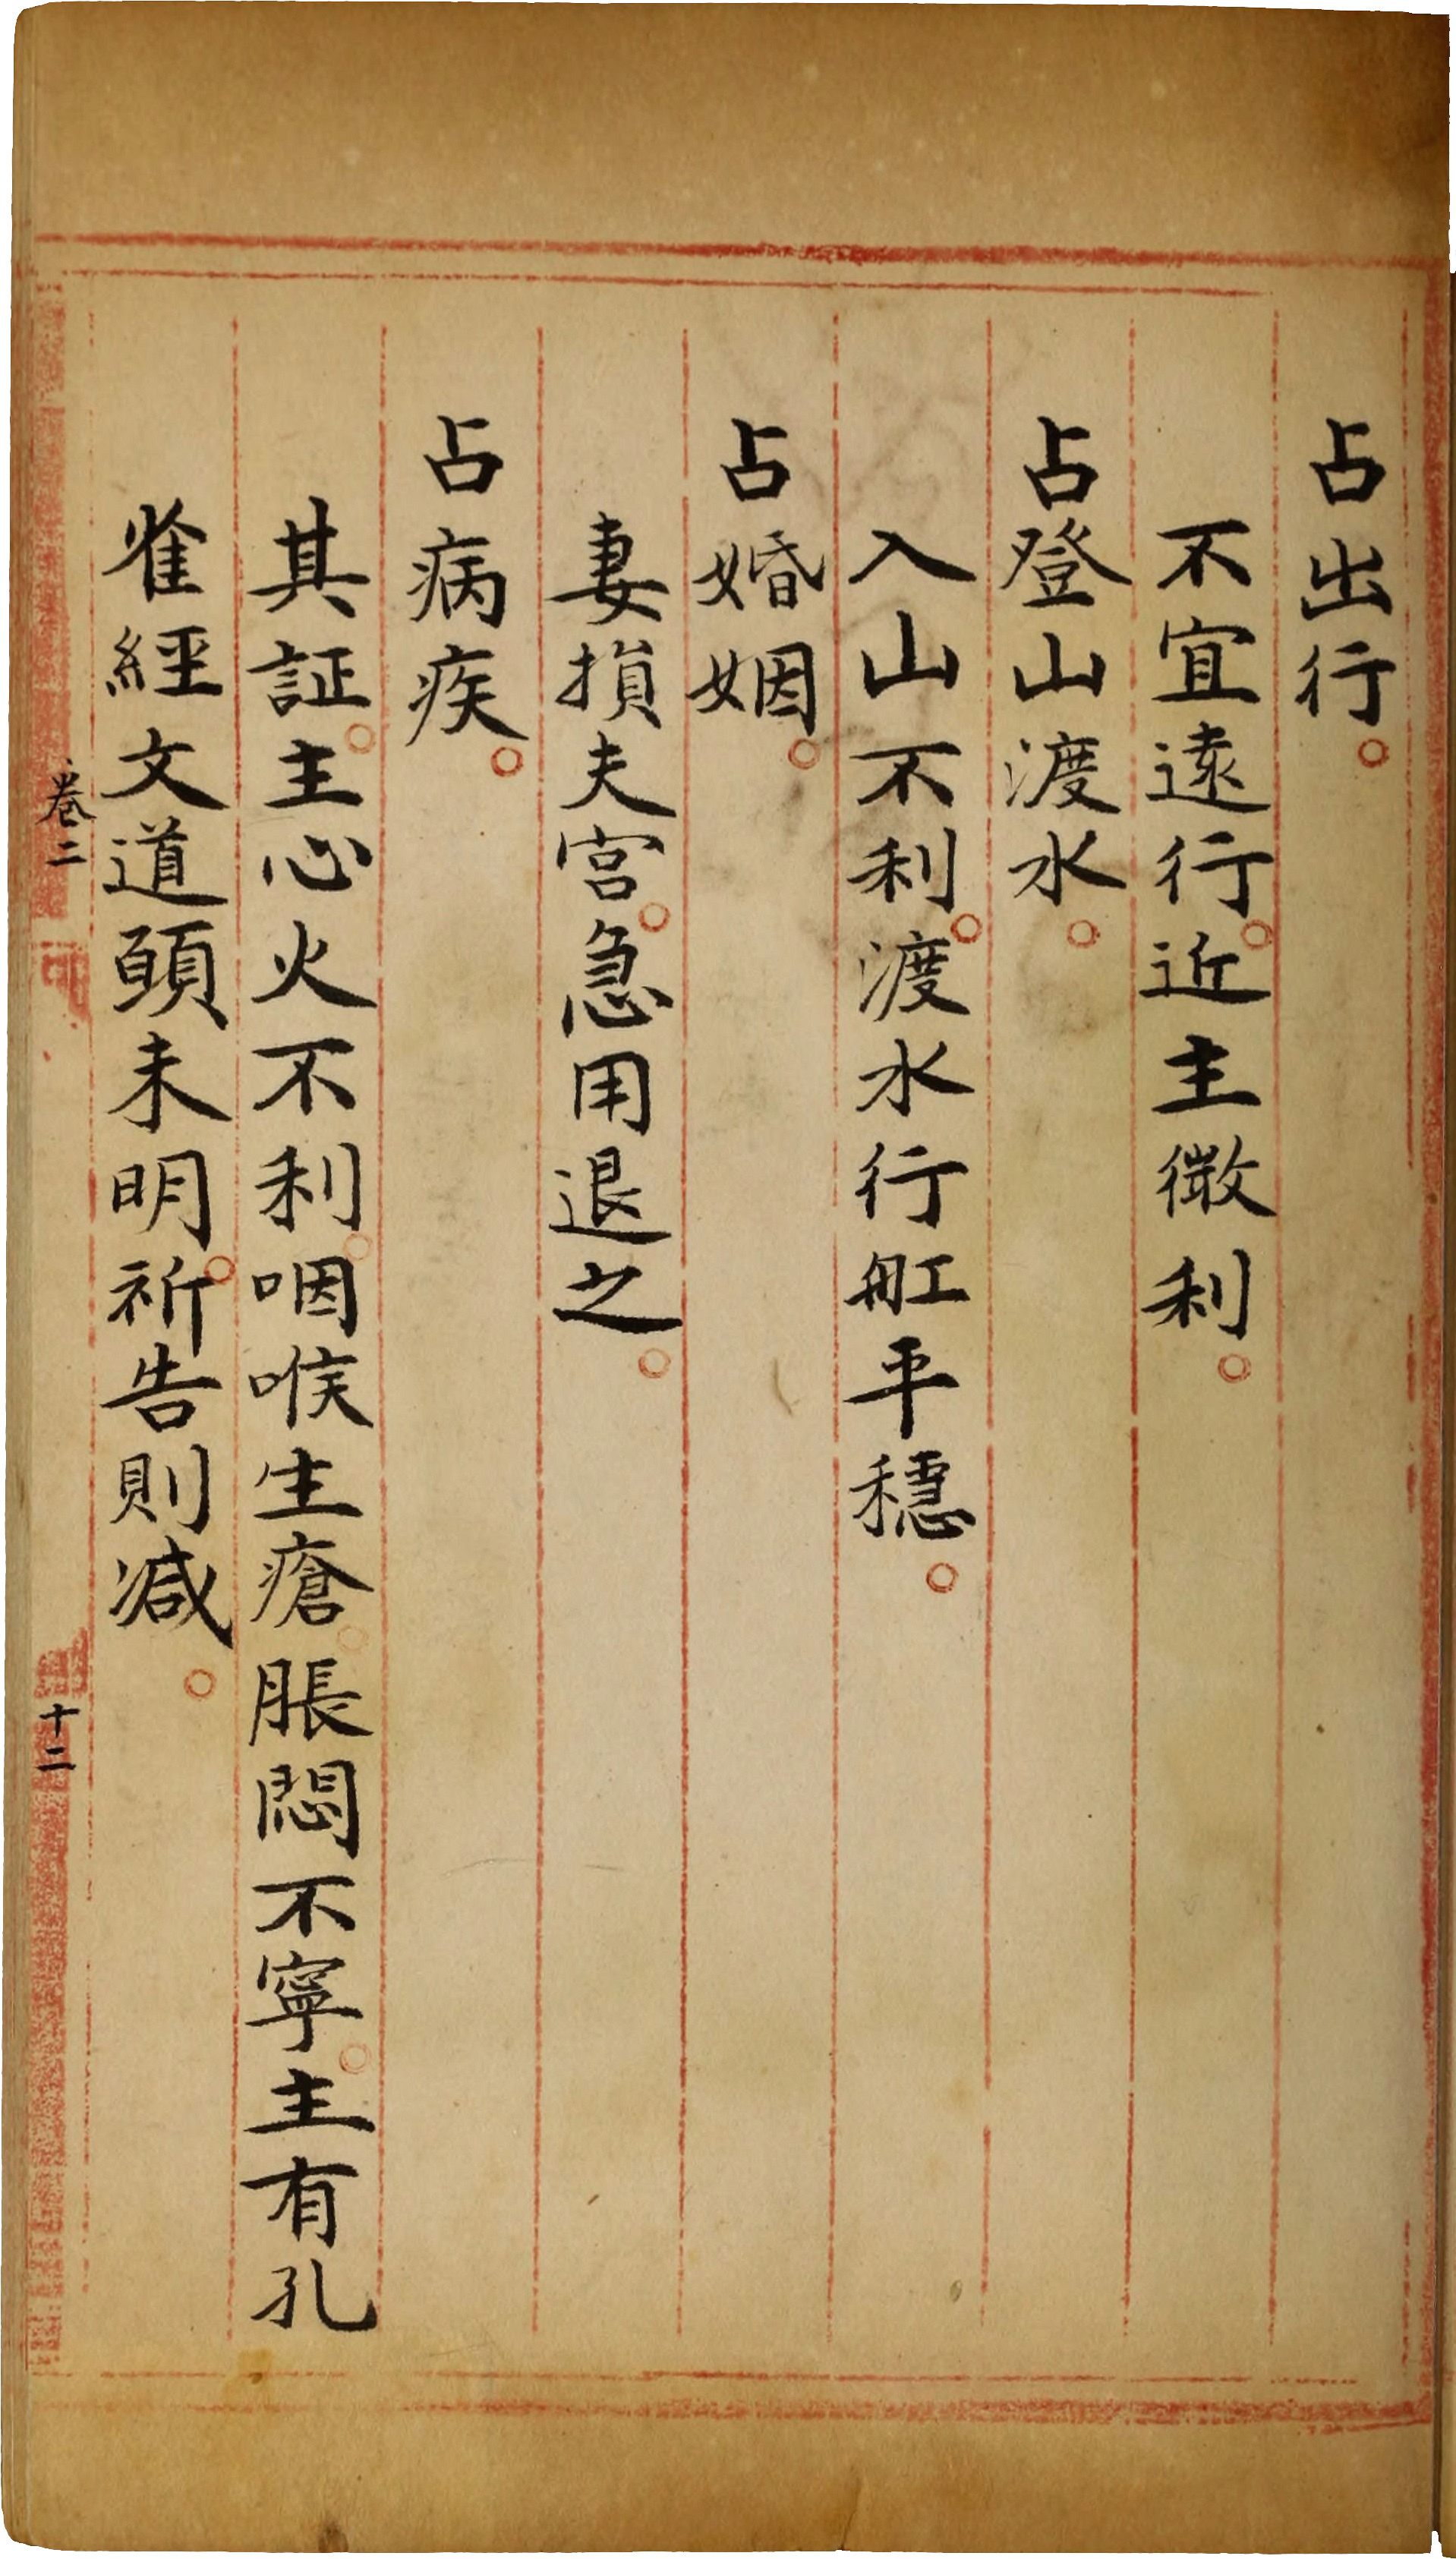 占出行。
不宜遠行。近主微利。
占登山渡水。
入山不利。渡水行舡平穩。
占婚姻。
妻損夫宮。急用退之。
占病疾。
其証。主心火不利。咽喉生瘡。脹悶不寧。主有孔
雀經文道願未明。祈告則減。
卷二
十二